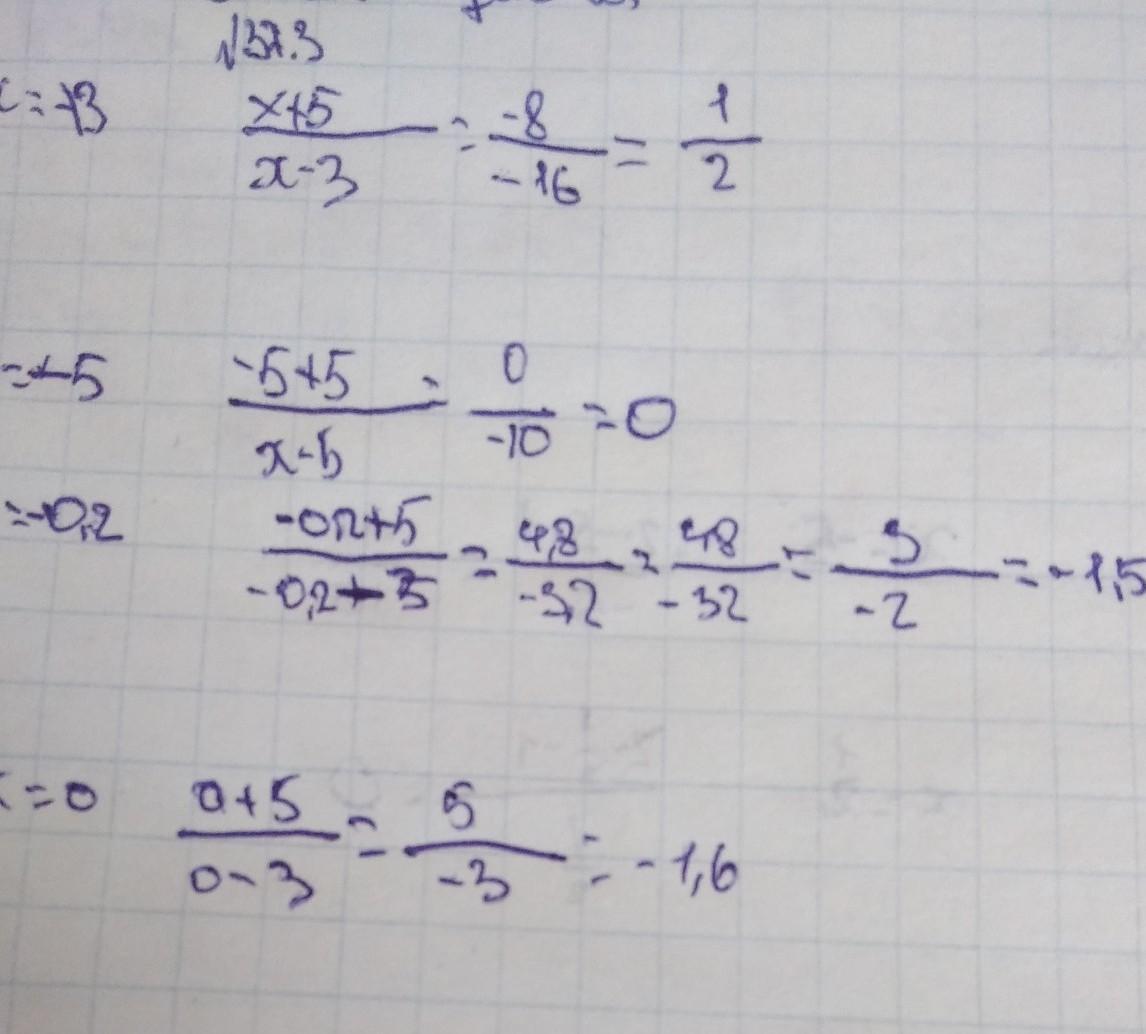 √37.3
x=-13 (x+5)/(x-3) = (-8)/(-16) = 1/2
=-5 (-5+5)/(x-5) = 0/(-10) = 0
=-0,2 (-0,2+5)/(-0,2-3) = 4,8/(-3,2) = 48/(-32) = 3/(-2) = -1,5
x=0 (0+5)/(0-3) = 5/(-3) = -1,6